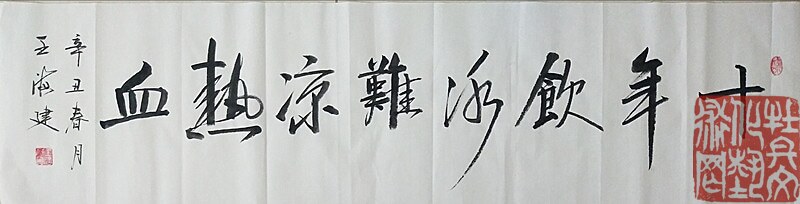 十年飲冰難涼熱血
辛丑春月
王海建